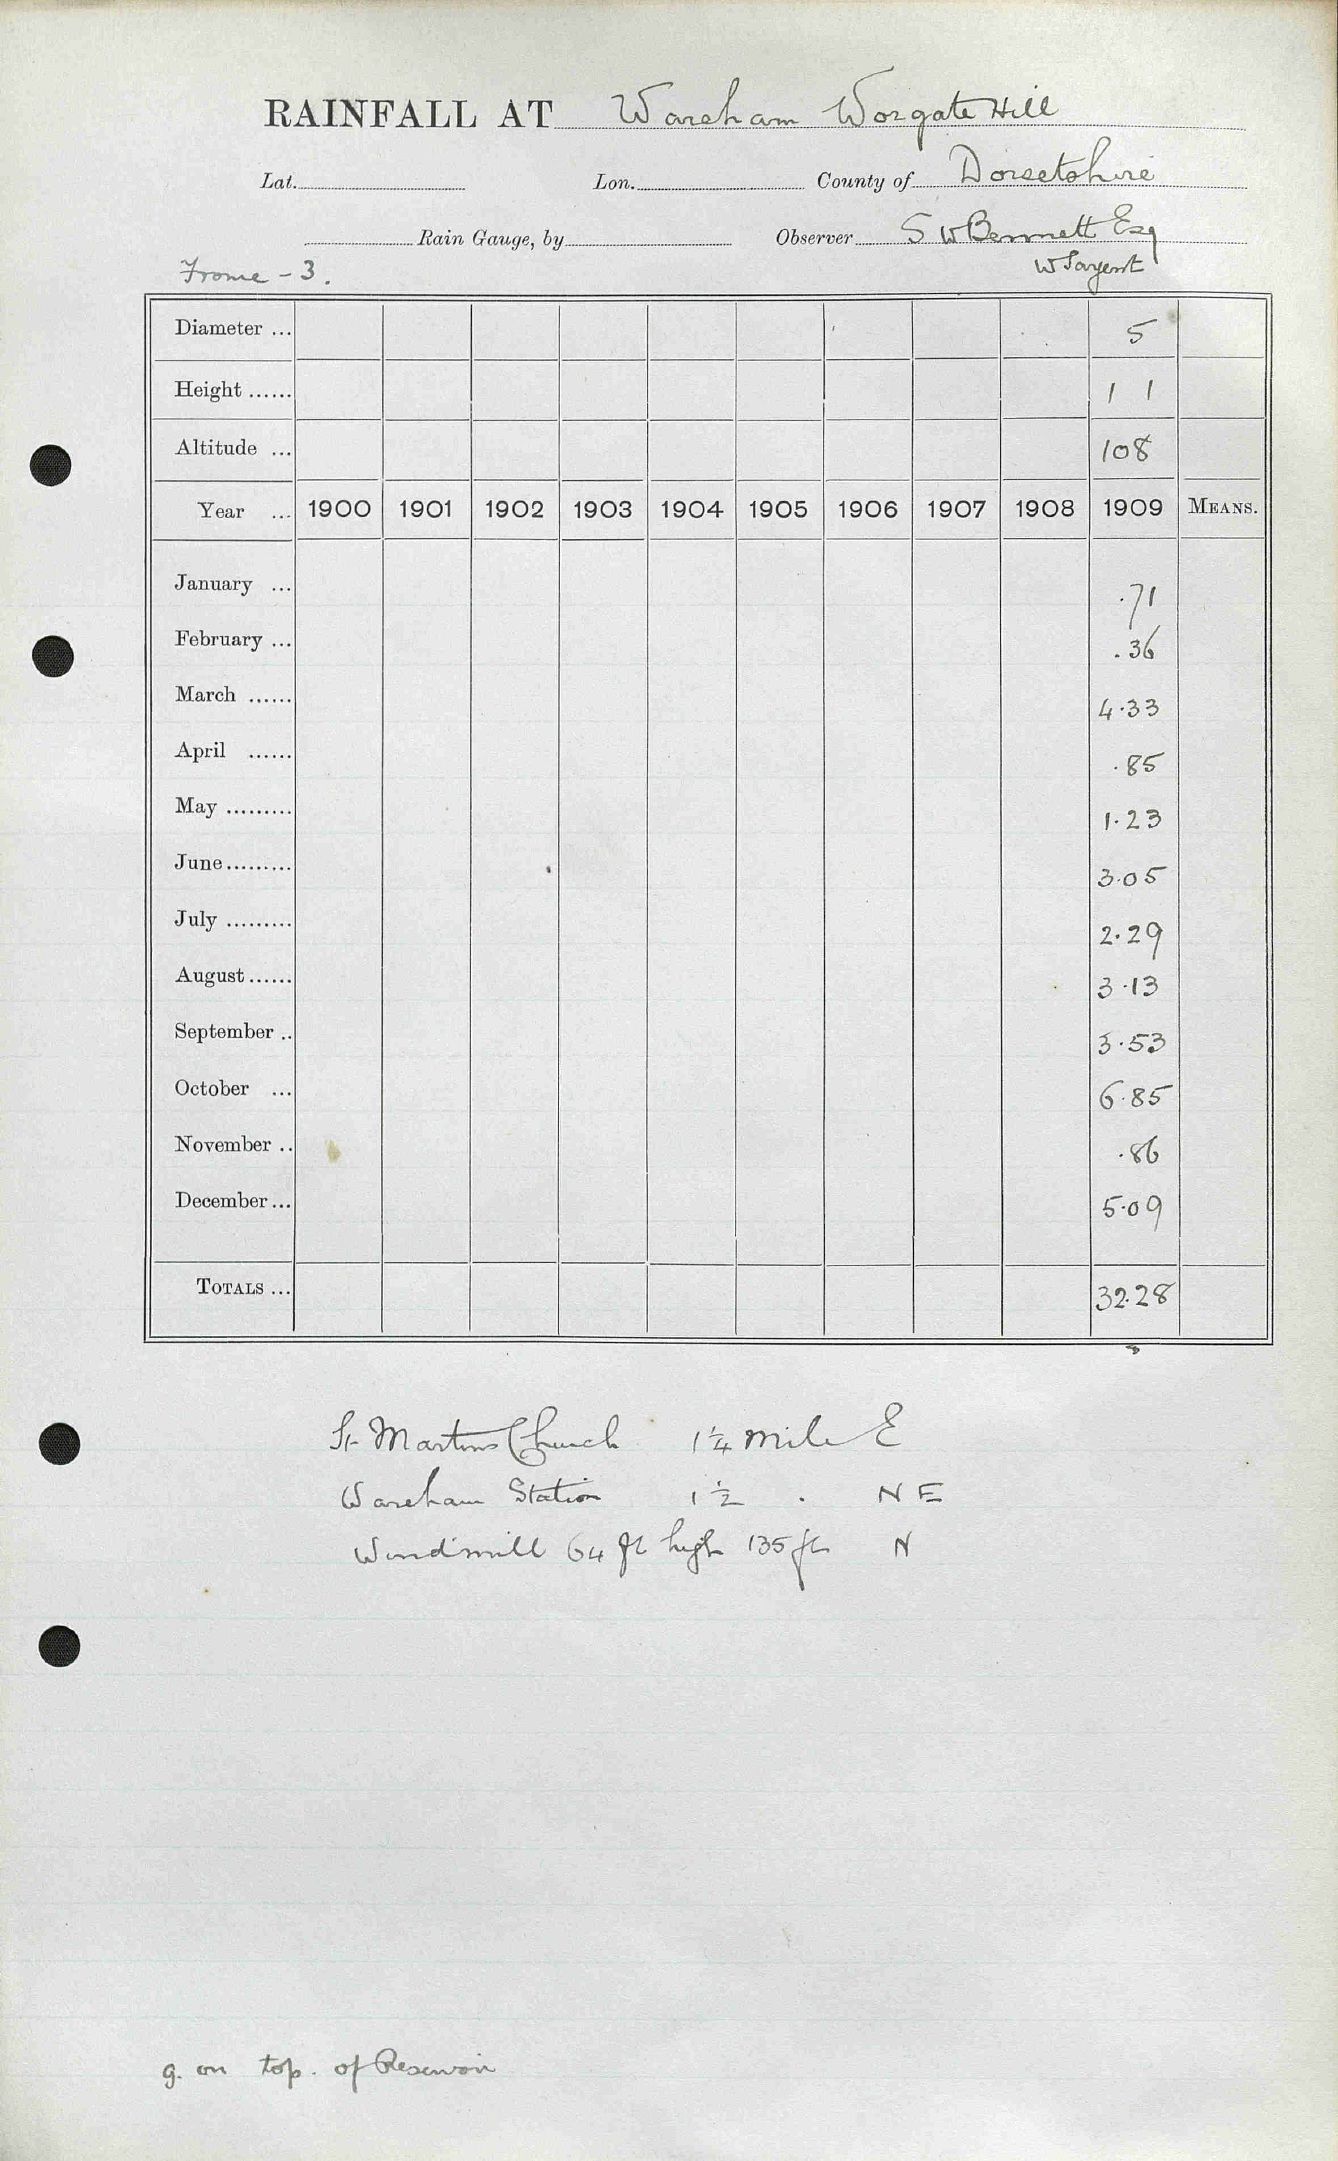 RAINFALL AT Wareham Worgate Hill
Lat. Lon. County of Dorsetshire
Rain Gauge, by Observer S W Bennett Esq
Frome - 3. W Sargent
Diameter ... 5
Height ...... 1 1
Altitude ... 108
Year ... 1900 1901 1902 1903 1904 1905 1906 1907 1908 1909 MEANS.
January ... .71
February ... .36
March ...... 4.33
April ...... .85
May ......... 1.23
June......... 3.05
July ......... 2.29
August...... 3.13
September .. 3.53
October ... 6.85
November .. .86
December... 5.09
TOTALS ... 32.28
St Martins Church 1¼ mile E
Wareham Station 1½ . NE
Windmill 64 ft high 135 ft N
g. on top. of Reservoir